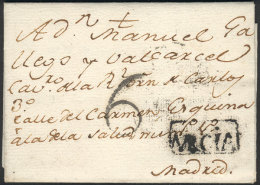 A Dn Manuel Ga
llego y Valcarcel
Cavro. de la Rl. orn de Carlos
3º
calle del Carmen Esquina
a la de la Salud
6
MRCIA
Madrid.